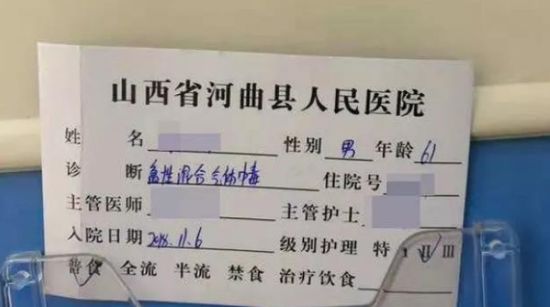 山西省河曲县人民医院
姓 名 性别 男 年龄 61
诊 断 急性混合气体中毒 住院号
主管医师 主管护士
入院日期 2018.11.6 级别护理 特 I II III
普食 全流 半流 禁食 治疗饮食